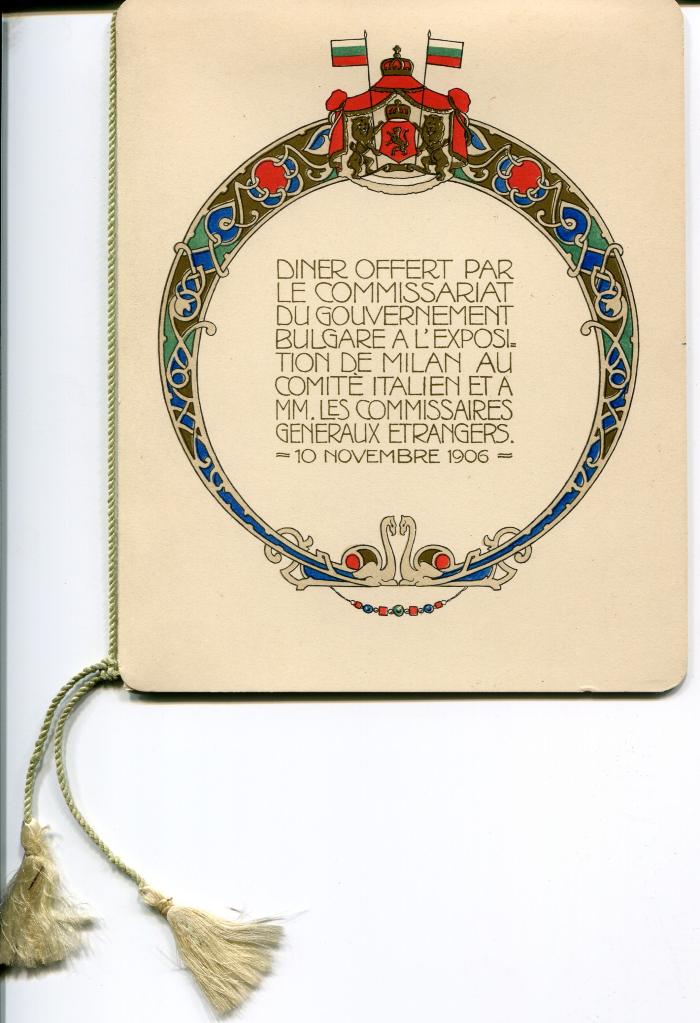 DINER OFFERT PAR
LE COMMISSARIAT
DU GOUVERNEMENT
BULGARE A L'EXPOSI=
TION DE MILAN AU
COMITÈ ITALIEN ET A
MM. LES COMMISSAIRES
GENERAUX ETRANGERS.
= 10 NOVEMBRE 1906 =